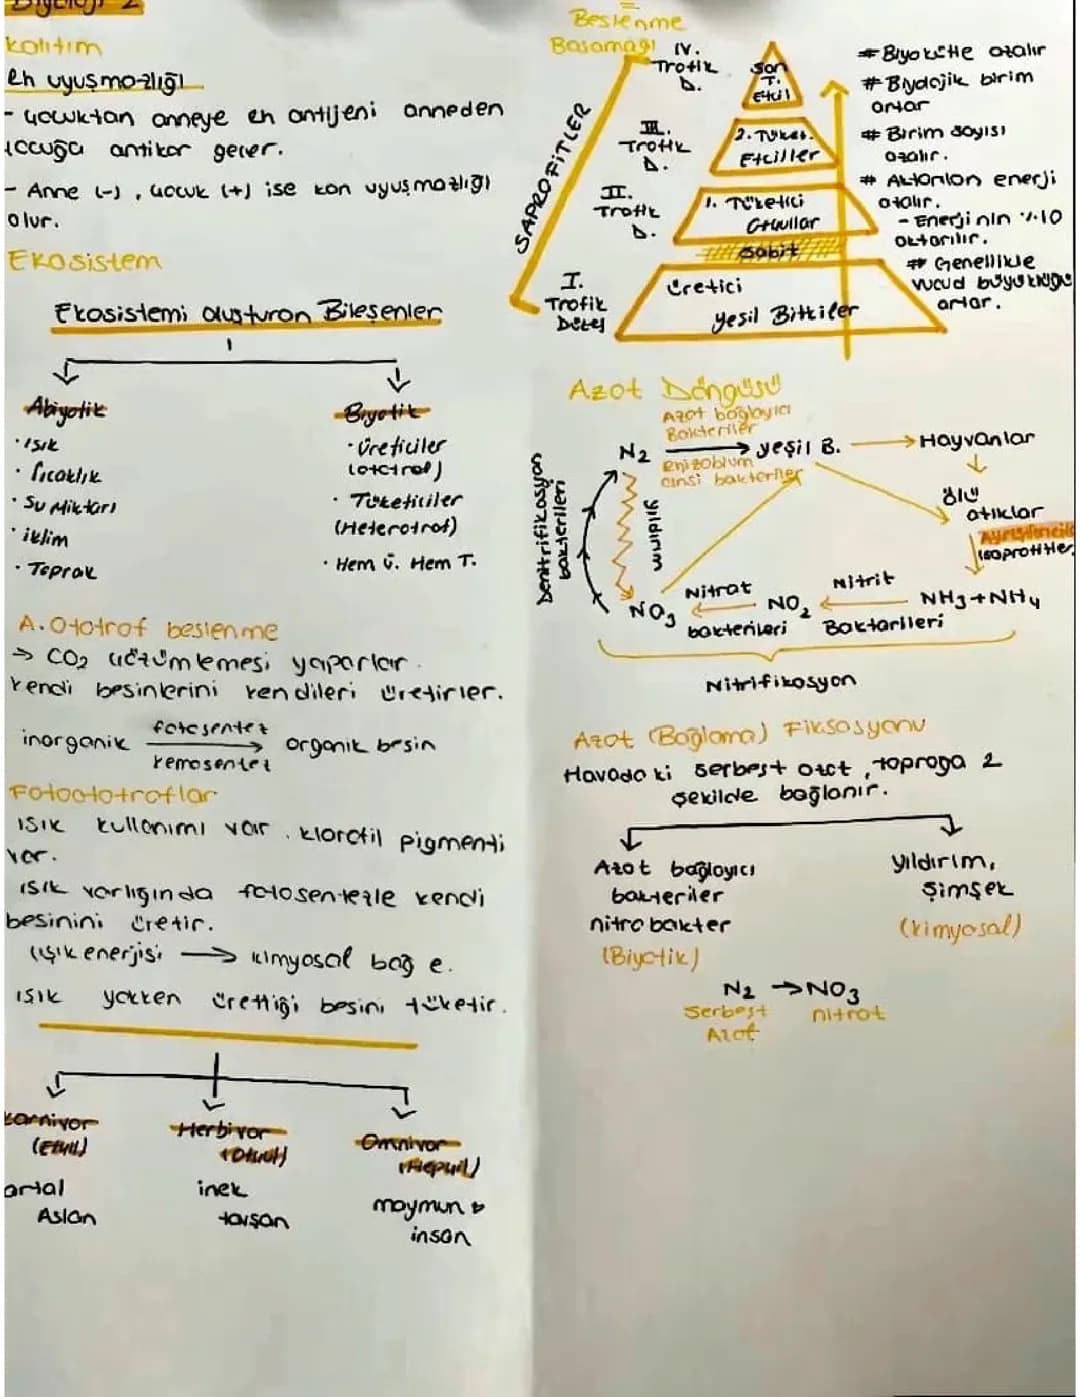 Biyoloji 2
kalıtım
Rh uyuşmazlığı
- Çocuktan anneye Rh antijeni anneden
çocuğa antikor geçer.
- Anne (-), çocuk (+) ise kan uyuşmazlığı
olur.
Ekosistem
Ekosistemi oluşturan Bileşenler
Abiyotik
· ışık
· Sıcaklık
· Su Miktarı
· iklim
· Toprak
Biyotik
· Üreticiler
(ototrof)
· Tüketiciler
(Heterotrof)
· Hem Ü. Hem T.
A. Ototrof beslenme
→ CO2 özümlemesi yaparlar.
kendi besinlerini kendileri üretirler.
inorganik fotosentez kemosentez organik besin
Fotoototroflar
ışık kullanımı var. klorofil pigmenti
var.
ışık varlığında fotosentezle kendi
besinini üretir.
(ışık enerjisi → kimyasal bağ e.
ışık yokken ürettiği besini tüketir.
karnivor
(Etçil)
artal
Aslan
Herbivor
(Otçul)
inek
tavşan
Omnivor
(Hepçil)
maymun
insan
Beslenme
Basamağı
SAPROFİTLER
IV.
Trofik
D.
III.
Trofik
D.
II.
Trofik
D.
I.
Trofik
Düzey
Son
T.
Etçil
2. Tüket.
Etçiller
1. Tüketici
Otçullar
Sabit
Üretici
yeşil Bitkiler
# Biyokütle azalır
# Biyolojik birim
artar
# Birim sayısı
azalır.
# Aktarılan enerji
azalır.
- Enerjinin %10
aktarılır.
# Genellikle
vücud büyüklüğü
artar.
Azot Döngüsü
Azot bağlayıcı
Bakteriler
N2 → yeşil B. → Hayvanlar
enizobium
cinsi bakteriler
Denitrifikasyon
bakterileri
yıldırım
ölü
atıklar
Ayrıştırıcılar
(saprofitler)
NO3 Nitrat bakterileri NO2 Nitrit Baktarileri NH3+NH4
Nitrifikasyon
Azot (Bağlama) Fiksasyonu
Havada ki serbest azot, toprağa 2
şekilde bağlanır.
Azot bağlayıcı
bakteriler
nitro bakter
(Biyotik)
yıldırım,
şimşek
(kimyasal)
N2 → NO3
Serbest
Azot
nitrat